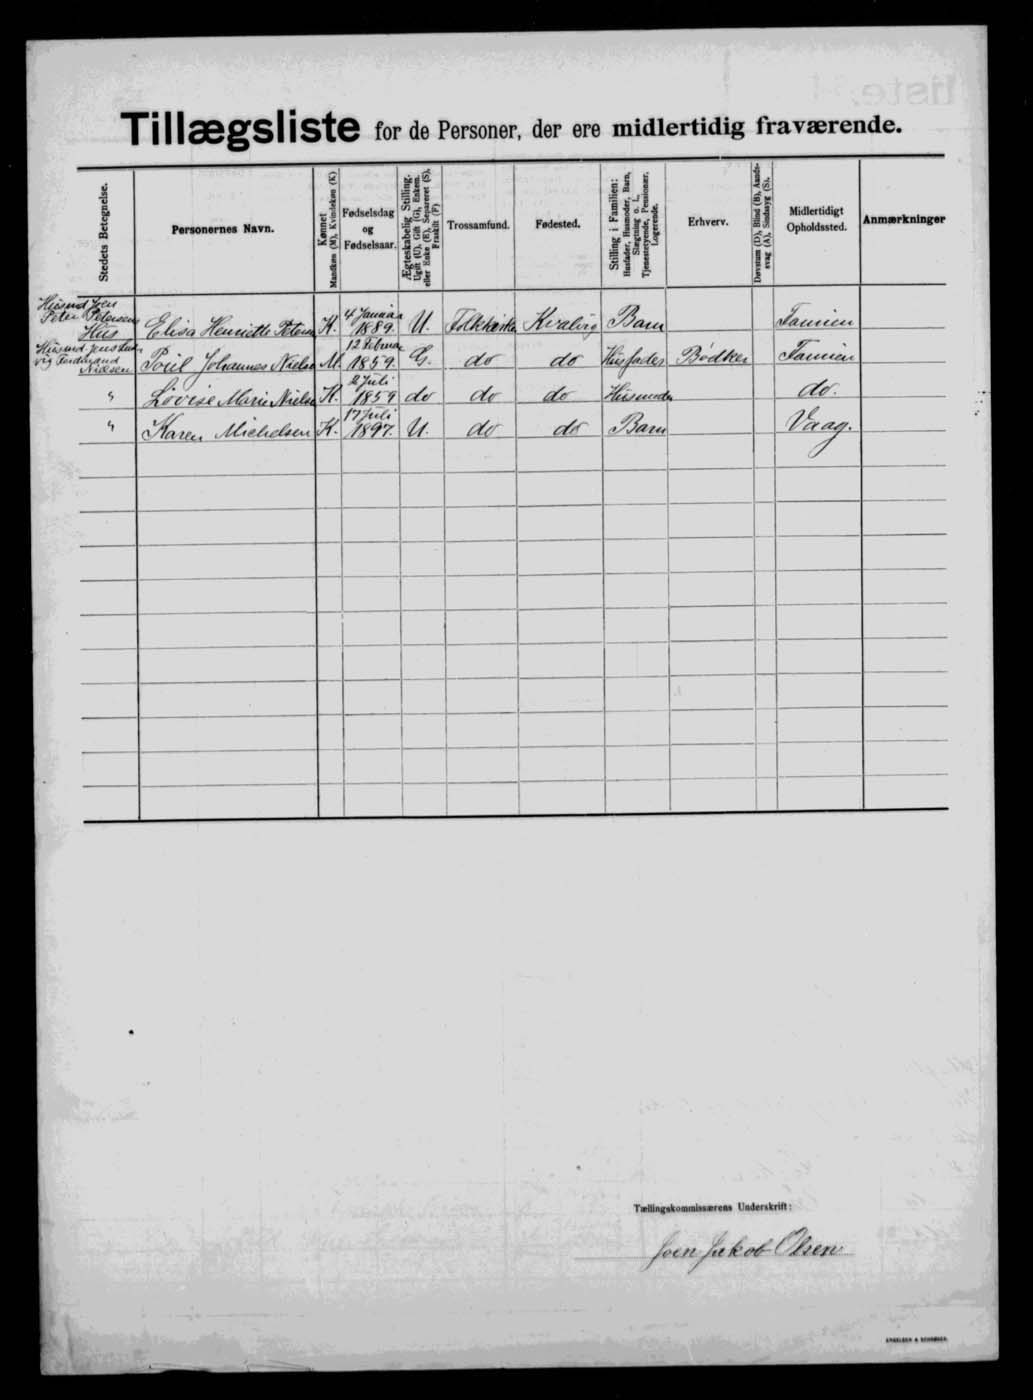 Tillægsliste for de Personer, der ere midlertidig fraværende.
Stedets Betegnelse.
Personernes Navn.
Kønnet
Mandkøn (M), Kvindekøn (K)
Fødselsdag
og
Fødselsaar.
Ægteskabelig Stilling.
Ugift (U), Gift (G), Enkem.
eller Enke (E), Separeret (S),
Fraskilt (F)
Trossamfund.
Fødested.
Stilling i Familien:
Husfader, Husmoder, Barn,
Slægtning o. l.,
Tjenestetyende, Pensionær,
Logerende.
Erhverv.
Døvstum (D), Blind (B), Aands-
svag (A), Sindssyg (S).
Midlertidigt
Opholdssted.
Anmærkninger
Husmd Joen
Peter Petersens
Hus
Elisa Henriette Petersen K. 4 Januar 1889. U. Folkekirken Kvalvig Barn Famien
Husmd. Jens
og Ferdinand
Nielsen
Poul Johannes Nielsen M. 12 Februar 1859. G. do do Husfader Bødker Famien
" Lovise Marie Nielsen K. 2 Juli 1859 do do do Husmoder do.
" Karen Michelsen K. 17 Juli 1897. U. do do Barn Vaag.
Tællingskommissærens Underskrift:
Joen Jakob Olsen